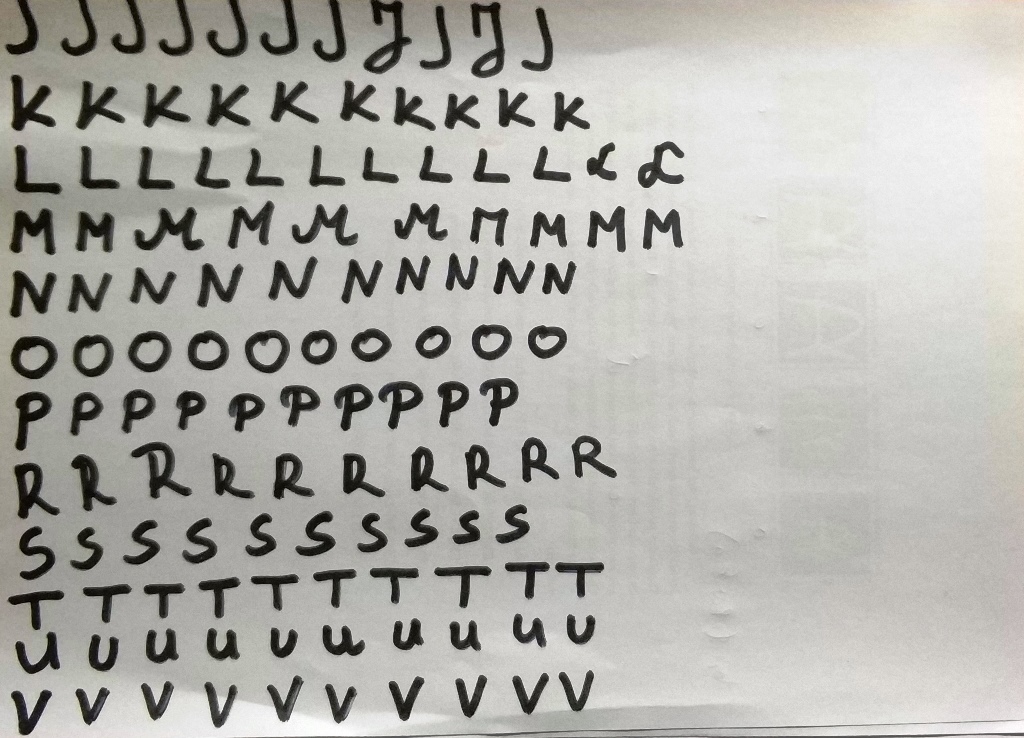 J J J J J J J J J J J
K K K K K K K K K K
L L L L L L L L L L L L
M M M M M M M M M M
N N N N N N N N N N
O O O O O O O O O O
P P P P P P P P P P
R R R R R R R R R R
S S S S S S S S S
T T T T T T T T T T
U U U U U U U U U U
V V V V V V V V V V